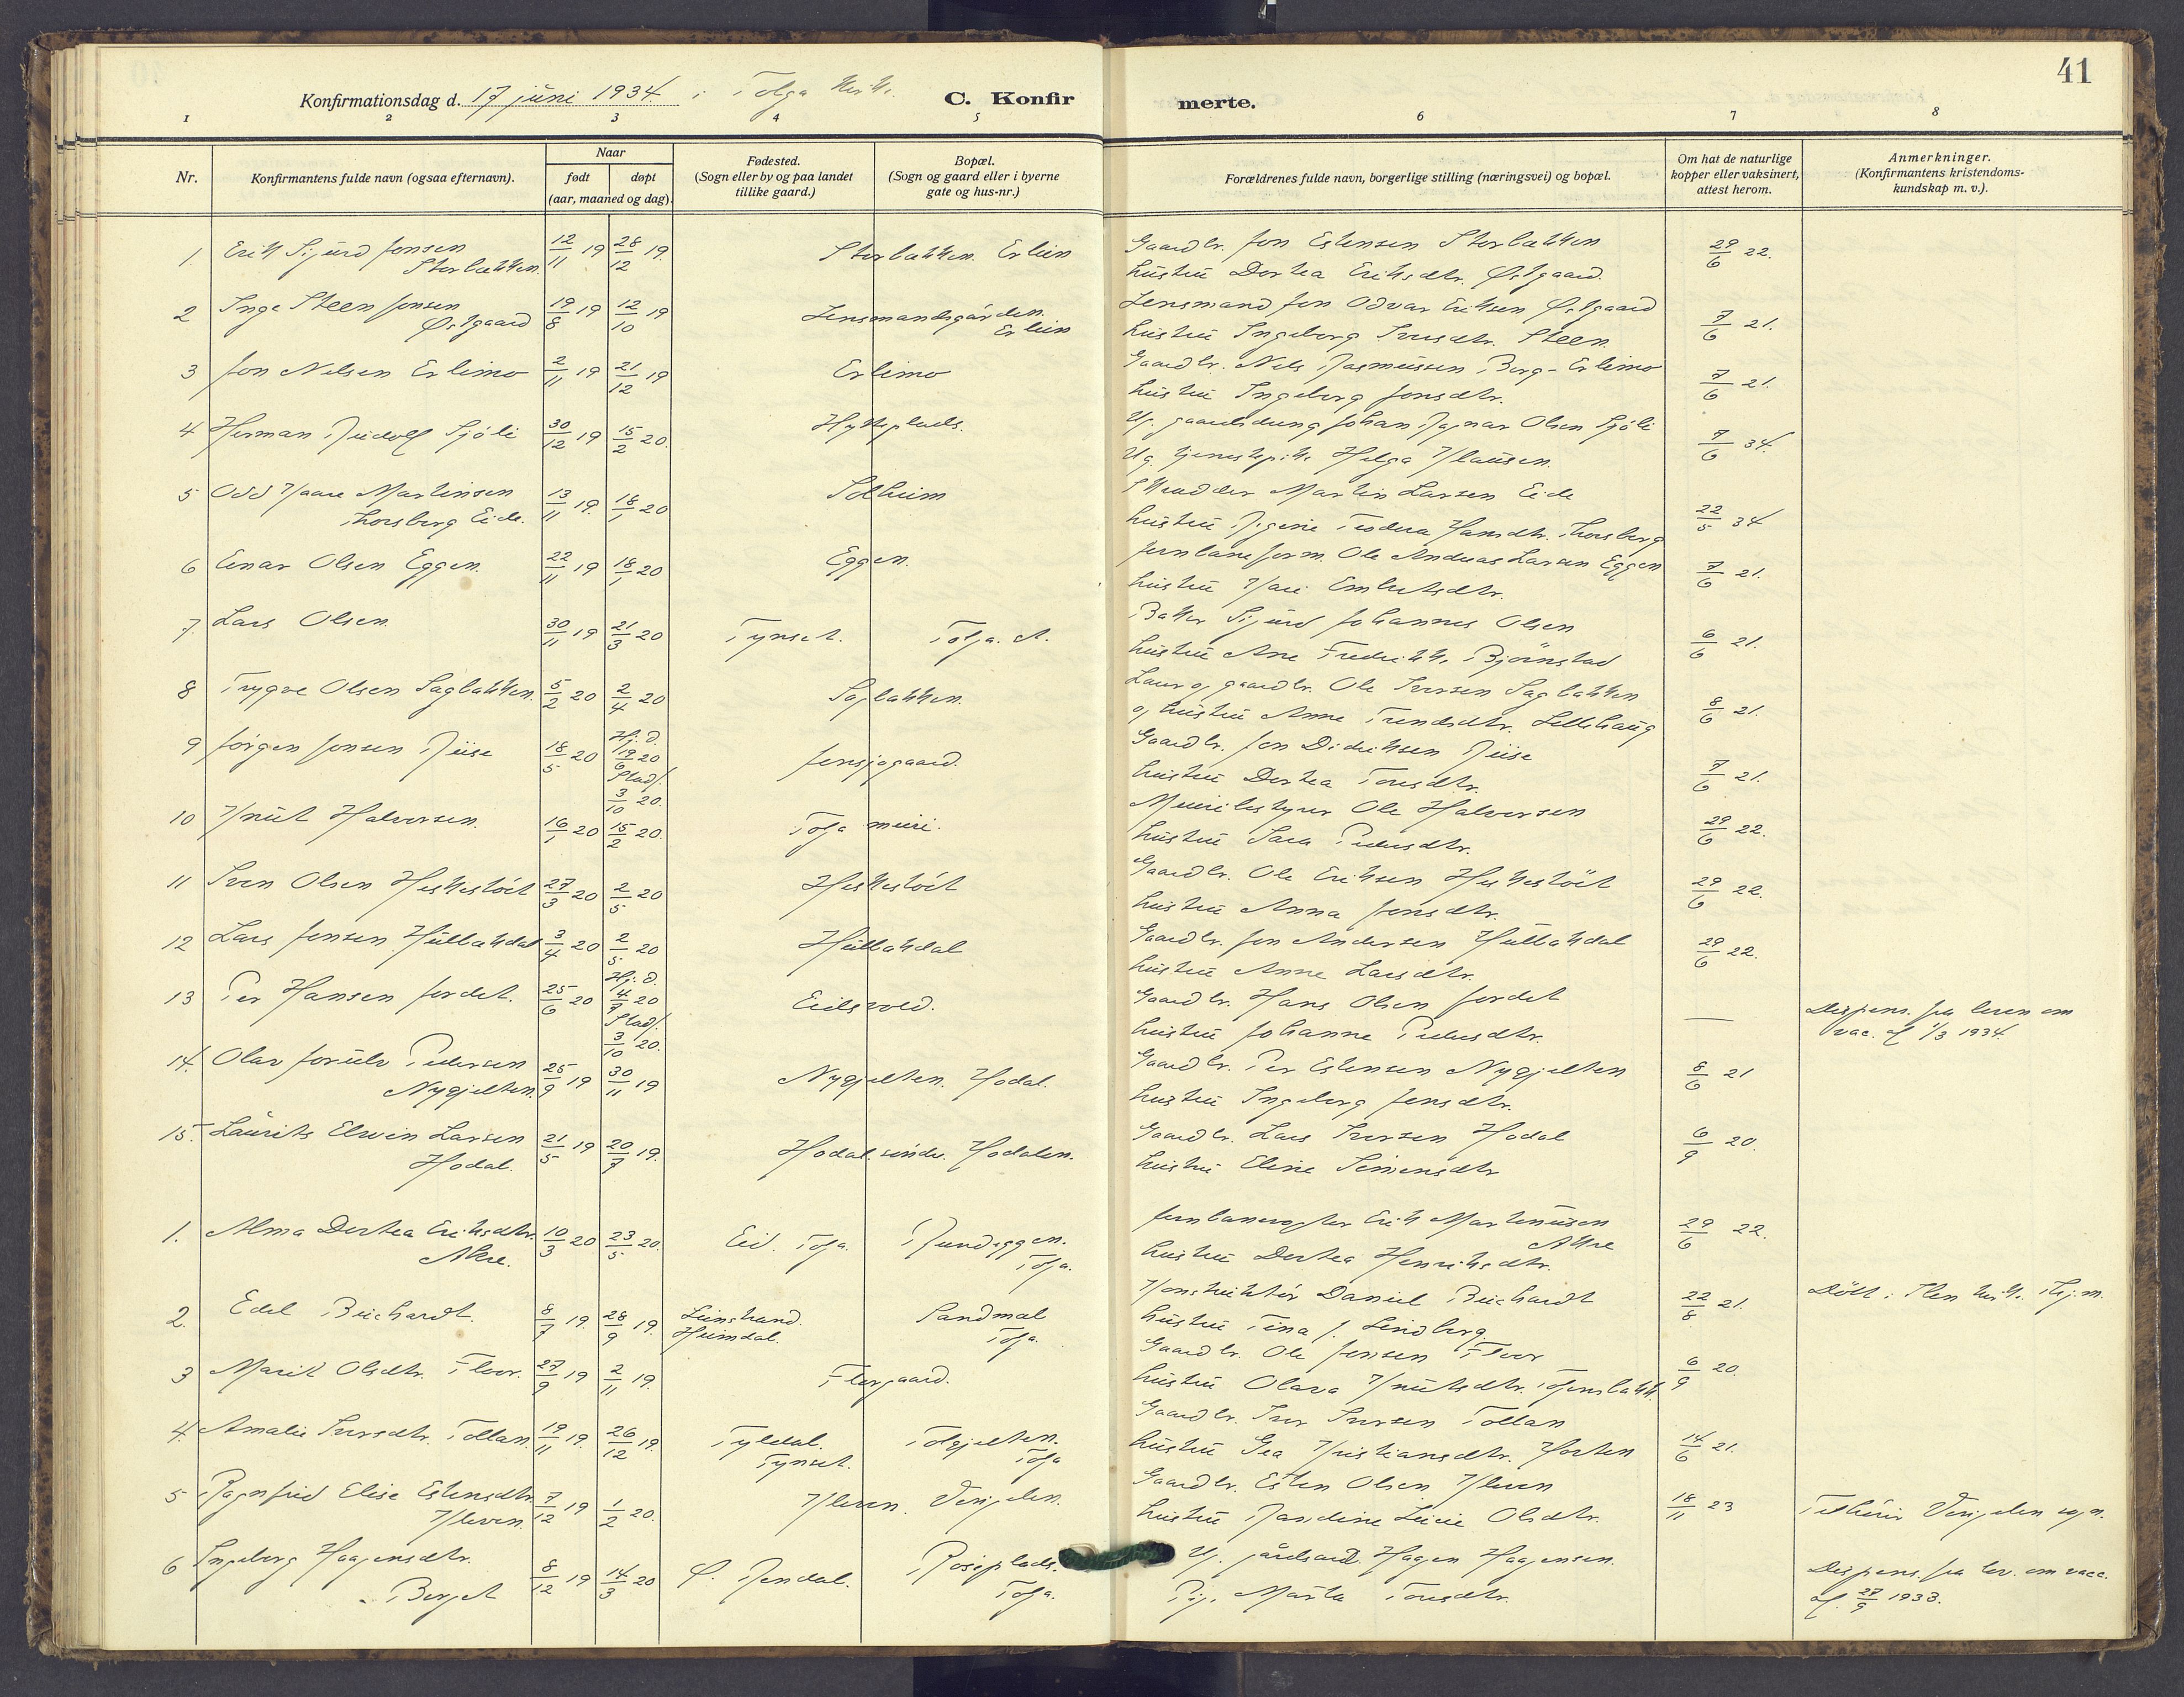 41
Konfirmationsdag d. 17 juni 1934 i Tolga
C. Konfirmerte.
1 2 3 4 5 6 7 8
Nr.
Konfirmantens fulde navn (ogsaa efternavn).
Naar
født døpt
(aar, maaned og dag).
Fødested.
(Sogn eller by og paa landet
tillike gaard.)
Bopæl.
(Sogn og gaard eller i byerne
gate og hus-nr.)
Forældrenes fulde navn, borgerlige stilling (næringsvei) og bopæl.
Om hat de naturlige
kopper eller vaksinert,
attest herom.
Anmerkninger.
(Konfirmantens kristendoms-
kundskap m. v.).
1. Erik Sigurd Jonsen Storbakken 12/11 19 28/12 19. Storbakken. Erlien
Gaardbr. Jon Estensen Storbakken
hustru Dortea Eriksdtr. Østgaard. 29/6 22.
2 Inge Steen Jonsen Østgaard 19/8 19 12/10 19 Lensmandsgården. Erlien
Lensmand Jon Odvar Eriksen Østgaard
hustru Ingeborg Iversdtr. Steen. 7/6 21.
3 Jon Nilsen Erlimo 2/11 19 21/12 19 Erlimo
Gaardbr. Nils Rasmussen Berg-Erlimo
hustru Ingeborg Jonsdtr. 7/6 21.
4 Herman Rudolf Sjöli 30/12 19 15/2 20. Hytteplads.
Ug. gaardsdreng Johan Ragnar Olsen Sjöli
Ug. tjenestepike Helga Klausen. 7/6 34.
5 Odd Kaare Martinsen Thorsberg Eide. 13/11 19. 18/1 20 Solheim
Skrædder Martin Larsen Eide
hustru Teodora Hansdtr. Thorsberg 22/5 34
6 Einar Olsen Eggen. 22/11 19 18/1 20 Eggen.
Jernbaneform. Ole Andreas Larsen Eggen
hustru Kari Embretsdtr. 7/6 21.
7. Lars Olsen 30/11 19 21/3 20 Tynset. Tolga. st.
Baker Sigurd Johannes Olsen
hustru Ane Fredrikke Björnstad 6/6 21.
8 Trygve Olsen Sagbakken. 5/2 20 2/4 20 Sagbakken.
Laur og gaardbr. Ole Iversen Sagbakken
og hustru Anne Trondsdtr. Lillehaug 8/6 21.
9 Jörgen Jonsen Riise 18/5 20 Hj. d. 19/6 20 Stadf. 3/10 20. Jensjogaard.
Gaardbr. Jon Didriksen Riise
hustru Dortea Toresdtr. 7/6 21.
10 Knut Halvorsen. 16/1 20 15/2 20. Tolga meieri.
Meieribestyrer Ole Halvorsen
hustru Sara Pedersdtr. 29/6 22.
11 Sven Olsen Heskestöit 27/3 20 2/5 20 Heskestöit
Gaardbr. Ole Eriksen Heskestöit
hustru Anna Jonsdtr. 29/6 22.
12 Lars Jonsen Hullakdal 3/4 20 2/5 20 Hullakdal
Gaardbr. Jon Andersen Hullakdal
hustru Anne Larsdtr. 29/6 22.
13 Per Hansen Jordet. 25/6 20 Hj. d. 4/7 20 Stadf. 3/10 20. Eidsvold.
Gaardbr. Hans Olsen Jordet
hustru Johanne Pedersdtr. —
Dispens. fra loven om
vac. af 1/3 1934.
14. Olav Jorulv Pedersen Nygjelten. 25/9 19 30/11 19 Nygjelten. Hodal.
Gaardbr. Per Estensen Nygjelten
hustru Ingeborg Jonsdtr. 8/6 21
15. Laurits Elwin Larsen Hodal. 21/5 19 20/7 19. Hodal. söndr. Hodalen.
Gaardbr. Lars Iversen Hodal
hustru Eline Simensdtr 6/9 20.
1. Alma Dortea Eriksdtr. Akre. 10/3 20 23/5 20. Eid. Tolga. Rundeggen. Tolga.
Jernbanevogter Erik Martinussen Akre
hustru Dortea Henriksdtr. 29/6 22.
2. Edel Buchardt. 8/7 19. 28/9 19. Leinstrand. Heimdal. Sandmæl Tolga.
Konstruktör Daniel Buchardt
hustru Tina J. Lindberg. 22/8 21. Döbt i Ilen kirke. Thj.m.
3 Marit Olsdtr. Floor. 27/9 19 2/11 19. Florgaard.
Gaardbr. Ole Jonsen Floor
hustru Olava Knutsdtr. 6/9 20.
4. Amalie Iversdtr. Tollan 19/11 19. 26/12 19. Tyldal. Tynset. Tolgjelten. Tolga
Gaardbr. Iver Iversen Tollan
hustru Gea Kristiansdtr. Horten 14/6 21.
5 Ragnfrid Elise Estensdtr. Kleven. 7/12 19 1/2 20. Kleven. Vingelen.
Gaardbr. Esten Olsen Kleven
hustru Randine Lucie Olsdtr. 18/11 23 Tilhörer Vingelen sogn.
6 Ingeborg Haagensdtr. Berget 8/12 19 14/3 20 Ø. Rendal. Röseplads. Tolga.
Ug. Hagen Haagensen.
Pig. Marta Toresdtr.
Dispens. fra lov. om vacc.
af. 27/9 1933.